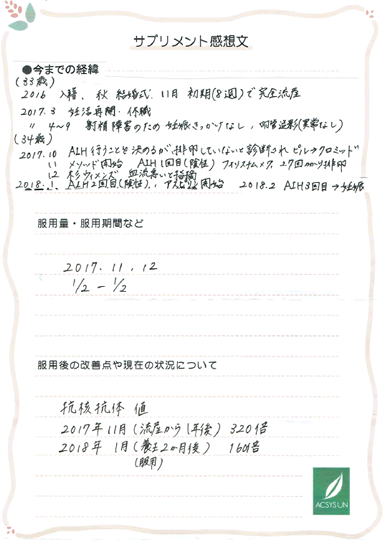 サプリメント感想文
●今までの経緯
(33歳)
2016 入籍、秋 結婚式、11月 初期(8週)で完全流産
2017.3 妊活再開・休職
〃 4~9 射精障害のため妊娠きっかけなし,
(34歳)
2017.10 AIH行うことを決めるが排卵していないと診断され ピル→クロミッド
11 メソッド開始 AIH1回目(陰性) 27回かかり排卵
12 杉ウィメンズ 血流悪いと指摘
2018.1. AIH2回目(陰性), アスピリン開始 2018.2 AIH3回目→妊娠
服用量・服用期間など
2017.11.12
1/2 - 1/2
服用後の改善点や現在の状況について
抗核抗体 値
2017年11月(流産から1年後) 320倍
2018年 1月(養去2ヶ月後) 160倍
(服用)
ACSYSUN